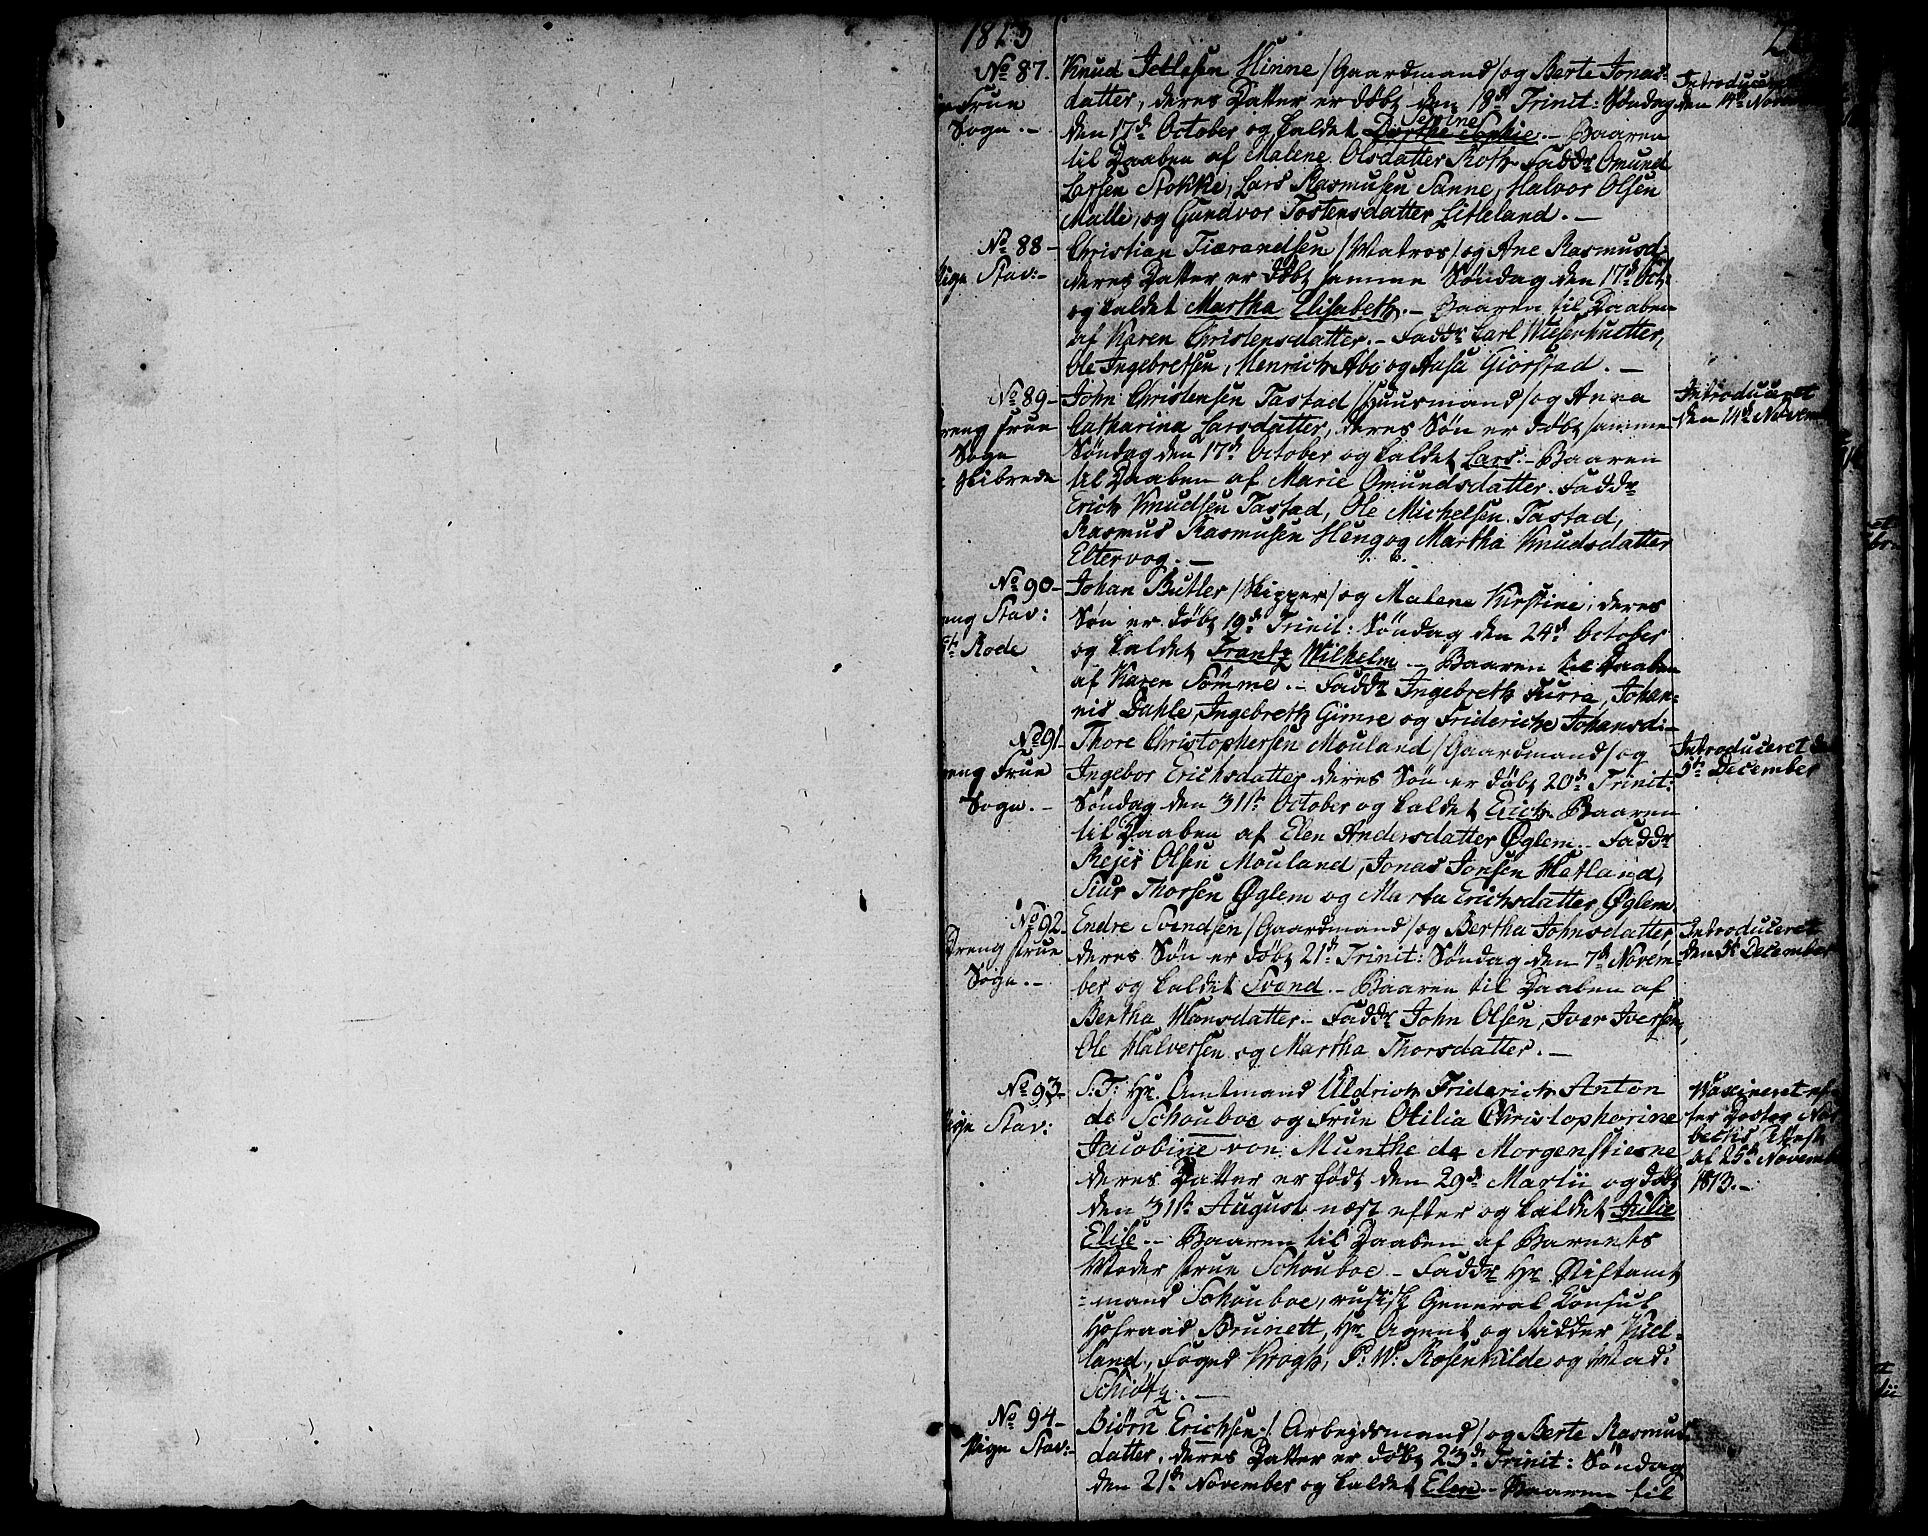 1813
No 87.
Frue
Sogn. -
Knud Jetlesen Hinne /Gaardmand/ og Berte Jonas-
datter, deres Datter er døbt den 18d Trinit: Søndag
den 17d October og kaldet Dorthe Serine Sophie. - Baaren
til Daaben af Malene Olsdatter Roth. Faddr Omund
Larsen Stokke, Lars Rasmusen Sanne, Halvor Olsen
Malle, og Gundvor Tostensdatter Litleland. -
Introduceret
den 14d Novem
No 88 -
Pige Stav: -
Christian Tiærandsen /Matros/ og Ane Rasmusd:
deres Datter er døbt samme Søndag den 17d Oct.
og kaldet Martha Elisabeth. - Baaren til Daaben
af Karen Christensdatter. - Faddr Carl Wieserhuetter,
Ole Ingebretsen, Henrich Abo og Aasa Giorstad. -
No 89 -
Dreng Frue
Sogn
Hibrede
John Christensen Tastad /Huusmand/ og Anna
Catharina Larsdatter, deres Søn er døbt samme
Søndag den 17d October og kaldet Lars. - Baaren
til Daaben af Marie Omundsdatter. Faddr
Erich Knudsen Tastad, Ole Michelsen Tastad,
Rasmus Rasmusen Heng og Martha Knudsdatter
Eltervog. -
Introduceret
den 14d Novem
No 90 -
Dreng Stav:
Rode
Johan Butler /Skipper/ og Malene Kirstine, deres
Søn er døbt 19d Trinit: Søndag den 24d October
og kaldet Frantz Wilhelm. - Baaren til Daaben
af Karen Sømme. - Faddr Ingebreth Furra, Johan-
nis Dahle, Ingebreth Gimre og Friderich Johansd: -
No 91 -
Dreng Frue
Sogn. -
Thore Christophersen Mouland /Gaardmand/ og
Ingebor Erichsdatter deres Søn er døbt 20d Trinit:
Søndag den 31te October og kaldet Erich. Baaren
til Daaben af Elen Andersdatter Øglem. - Faddr
Rejer Olsen Mouland, Jonas Jonsen Hetland,
Siur Thorsen Øglem og Marta Erichsdatter Øglem
Introduceret den
5te December
No 92.
Dreng Frue
Sogn. -
Endre Svendsen /Gaardmand/ og Bertha Johnsdatter
deres Søn er døbt 21d Trinit: Søndag den 7d Novem-
ber og kaldet Svend. - Baaren til Daaben af
Bertha Monsdatter. - Faddr John Olsen, Iver Iversen,
Ole Halversen og Martha Thorsdatter. -
Introduceret
den 5te December
No 93 -
Pige Stav:
S: T: Hr. Amtmand Uldrich Friderich Anton
de Schouboe og Frue Otilia Christopharine
Jacobine von Munthe de Morgenstierne
deres Datter er født den 29d Martii og døbt
den 31te August næst efter og kaldet Julie
Elise. - Baaren til Daaben af Barnets
Moder Frue Schouboe - Faddr Hr. Stiftamt
-mand Schouboe, russisk General Konsul
Hofraad Brunett, Hr. Agent og Ridder Kiel-
land, Foged Krogh, P: W: Rosenkilde og Mad:
Schiøtz. -
Waxineret ef-
ter Doctor
Attest
af 25te Novemb
1813. -
No 94 -
Pige Stav: -
Biørn Erichsen / Arbejdsmand / og Berte Rasmus-
datter, deres Datter er døbt 23d Trinit: Søndag
den 21d November og kaldet Elen. - Baaren til